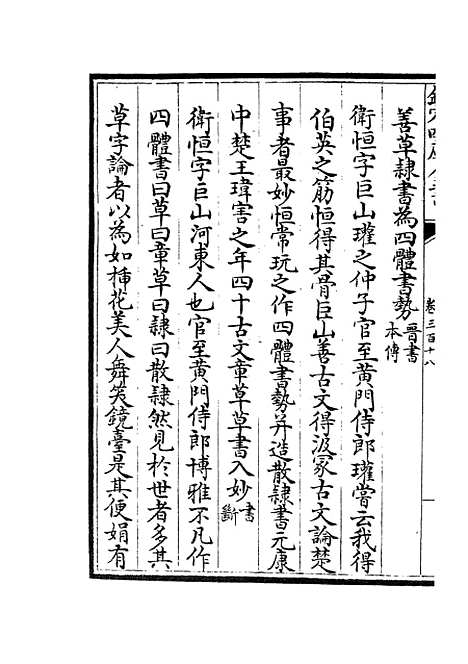 卷三百十八
善草隷書為四體書勢晉書本傳
衛恒字巨山瓘之仲子官至黄門侍郎瓘嘗云我得
伯英之筋恒得其骨巨山善古文得汲冢古文論楚
事者最妙恒常玩之作四體書勢并造散隷書元康
中楚王瑋害之年四十古文章草草書入妙書斷
衛恒字巨山河東人也官至黄門侍郎博雅不凡作
四體書曰草曰章草曰隷曰散隷然見於世者多其
草字論者以為如插花美人舞笑鏡臺是其便娟有